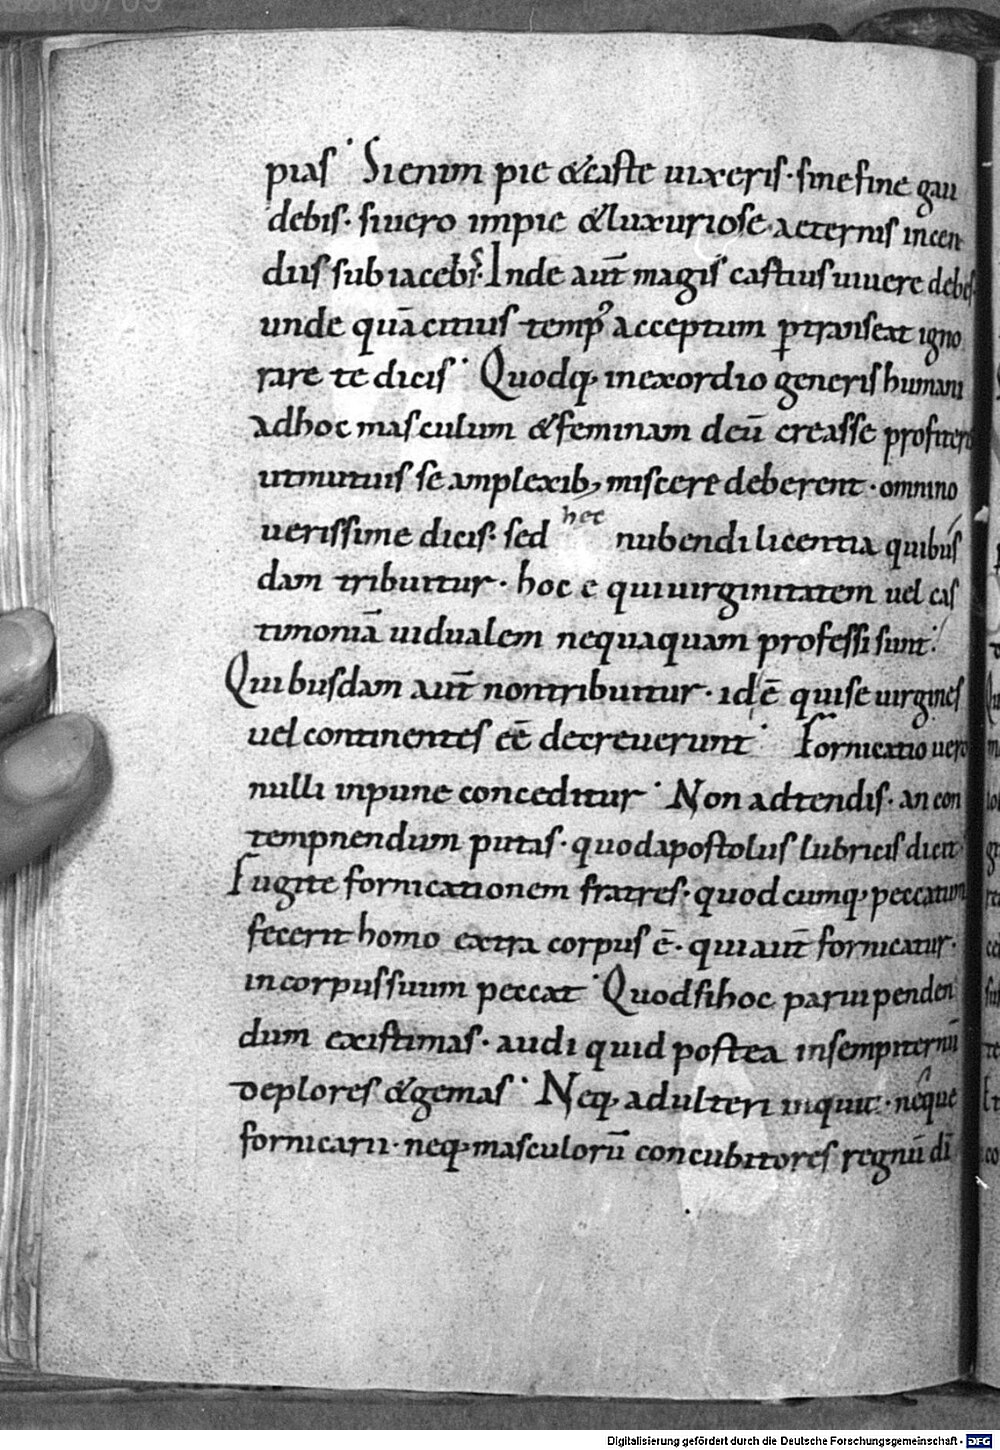 pias· Si enim pie & caste uixeris· sine fine gau
debis· si uero impie & luxuriose· aeternis incen
diis subiaceb̅s· Inde aut̅ magis castius uiuere debes
unde quā citius temp̕ acceptum p̱transeat igno
rare te dicis· Quodq; in exordio generis humani
adhoc masculum & feminam deū creasse
ut mutuis se amplexib; miscere deberent· omnino
uerissime dicis· sed hec nubendi licentia quibus
dam tribuitur· hoc ē qui uirginitatem uel cas
timoniā uidualem nequaquam professi sunt·
Quibusdam aut̅ non tribuitur· id ē qui se uirgines
uel continentes eē decreuerunt· Fornicatio uero
nulli inpune conceditur· Non adtendis· an con
tempnendum putas· quod apostolus lubricis dicit
Fugite fornicationem fratres· quodcumq; peccatum
fecerit homo extra corpus ē· qui aut̅ fornicatur·
in corpus suum peccat· Quod si hoc paruipenden
dum existimas· audi quid postea in sempiternū
deplores & gemas· Neq; adulteri inquit· neque
fornicarii· neq; masculorū concubitores regnū dī
Digitalisierung gefördert durch die Deutsche Forschungsgemeinschaft - DFG